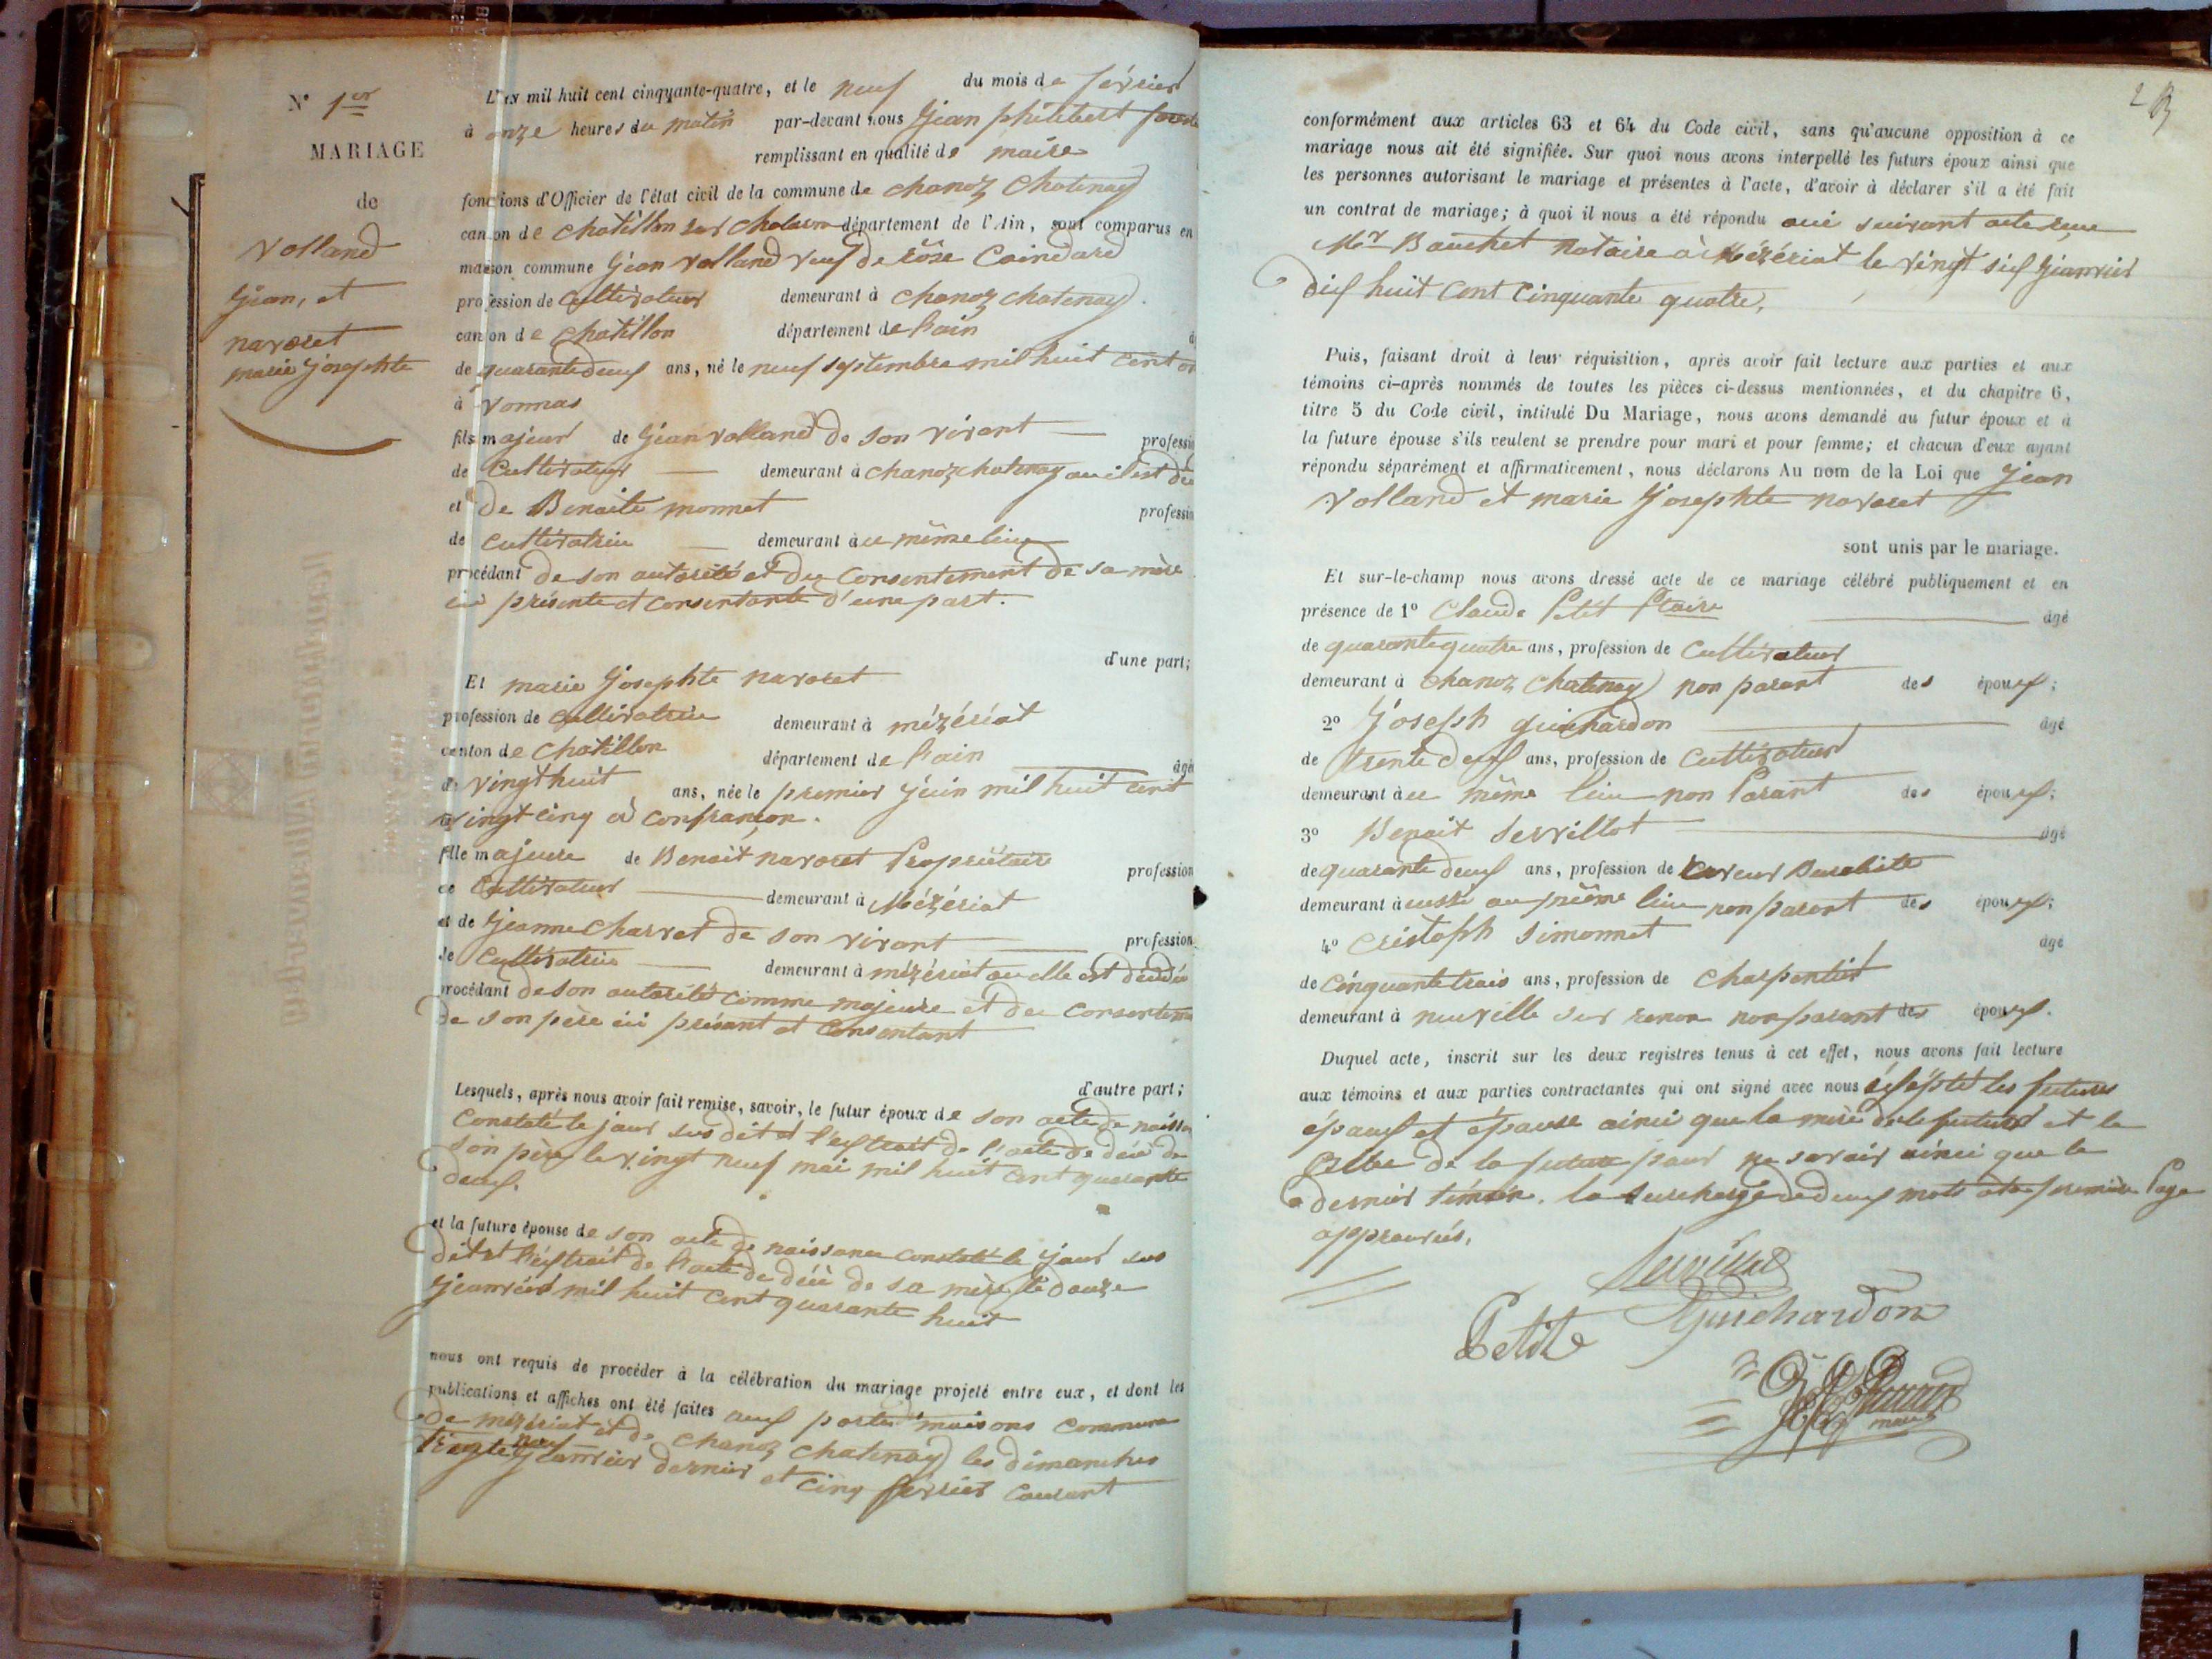 N° 1er
MARIAGE
de
Volland
Jean, et
navoret
marie Josephte
L'an mil huit cent cinquante-quatre, et le neuf du mois de février
à onze heures du matin par-devant nous Jean philibert
remplissant en qualité de maire
fonctions d'Officier de l'état civil de la commune de chanoz Chatenay
canton de chatillon sur chalaronne département de l'Ain, sont comparus en
maison commune Jean Volland veuf de rose Coindard
profession de cultivateur demeurant à chanoz chatenay
canton de chatillon département de l'ain
de quarante deux ans, né le neuf septembre mil huit cent on
à Vonnas
fils majeur de Jean Volland de son vivant professi
de Cultivateur demeurant à chanoz chatenay ou il est dé
et de Benoite monnet professi
de cultivatrice demeurant à ce même lieu
procédant de son autorité et du Consentement de sa mère
ici présente et consentante d'une part.
d'une part;
Et marie Josephte navoret
profession de cultivatrice demeurant à mézériat
canton de chatillon département de l'ain âgé
de vingt huit ans, née le premier juin mil huit cent
vingt cinq à confrançon.
fille majeure de Benoit navoret Propriétaire profession
de Cultivateur demeurant à Mézériat
et de Jeanne Charvet de son vivant profession
de Cultivatrice demeurant à mézériat ou elle est décédée
procédant de son autorité comme majeure et du consenteme
de son père ici présant et consentant
d'autre part;
Lesquels, après nous avoir fait remise, savoir, le futur époux de son acte de naissan
constaté le jour sus dit et l'extrait de l'acte de décé de
son père le vingt neuf mai mil huit cent quarante
deux.
et la future épouse de son acte de naissance constaté le jour sus
dit et l'extrait de l'acte de décé de sa mère le douze
Jeanvier mil huit cent quarante huit
nous ont requis de procéder à la célébration du mariage projeté entre eux, et dont les
publications et affiches ont été faites aux portes maisons commune
de mézériat et de chanoz chatenay les dimanches
vingt neuf Jeanvier dernier et cinq février courant
2
conformément aux articles 63 et 64 du Code civil, sans qu'aucune opposition à ce
mariage nous ait été signifiée. Sur quoi nous avons interpellé les futurs époux ainsi que
les personnes autorisant le mariage et présentes à l'acte, d'avoir à déclarer s'il a été fait
un contrat de mariage; à quoi il nous a été répondu oui suivant acte reçu
Mer Bouchet notaire à Mézériat le vingt six Jeanvier
dix huit cent cinquante quatre.
Puis, faisant droit à leur réquisition, après avoir fait lecture aux parties et aux
témoins ci-après nommés de toutes les pièces ci-dessus mentionnées, et du chapitre 6,
titre 5 du Code civil, intitulé Du Mariage, nous avons demandé au futur époux et à
la future épouse s'ils veulent se prendre pour mari et pour femme; et chacun d'eux ayant
répondu séparément et affirmativement, nous déclarons Au nom de la Loi que Jean
Volland et marie Josephte navoret
sont unis par le mariage.
Et sur-le-champ nous avons dressé acte de ce mariage célébré publiquement et en
présence de 1° Claude Petit Ptaire âgé
de quarante quatre ans, profession de Cultivateur
demeurant à chanoz Chatenay non parant des époux;
2° Joseph guichardon âgé
de trente deux ans, profession de Cultivateur
demeurant à ce même lieu non Parant des époux;
3° Benoit Servillat âgé
de quarante deux ans, profession de Buraliste
demeurant à aussi au même lieu non parent des époux;
4° Cristoph Simonnet âgé
de cinquante trois ans, profession de Charpentier
demeurant à neuville sur renon non parant des époux.
Duquel acte, inscrit sur les deux registres tenus à cet effet, nous avons fait lecture
aux témoins et aux parties contractantes qui ont signé avec nous les futures
époux et épouse ainsi que la mère de le futur et le
père de la future pour ne savoir ainsi que le
dernier témoin. la surcharge de deux mots à la première Page
approuvés.
Servillat
Guichardon
Petit
maire